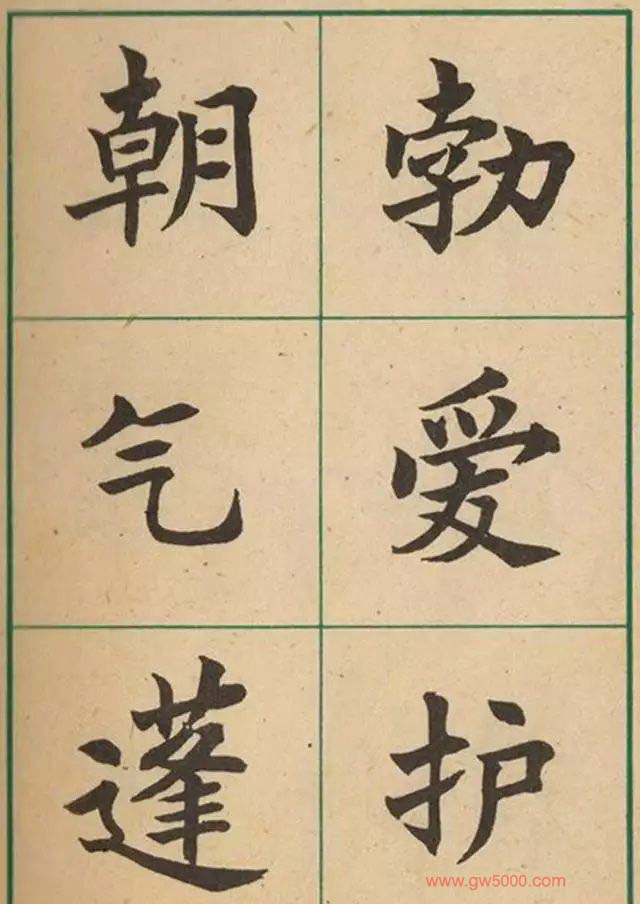 朝气蓬
勃爱护
www.gw5000.com